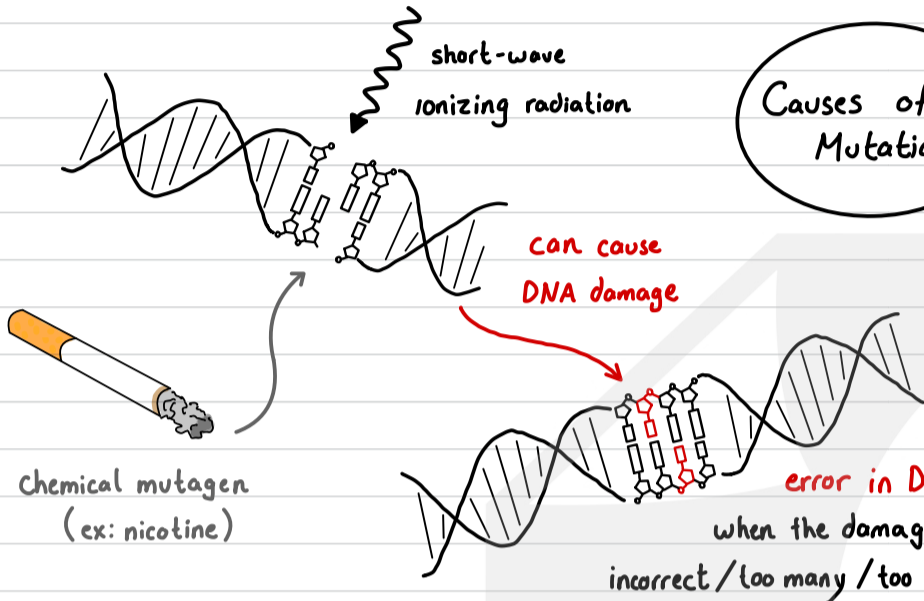 short-wave
ionizing radiation
Causes of
Mutatio
can cause
DNA damage
Chemical mutagen
(ex: nicotine)
error in D
when the damag
incorrect / too many / too